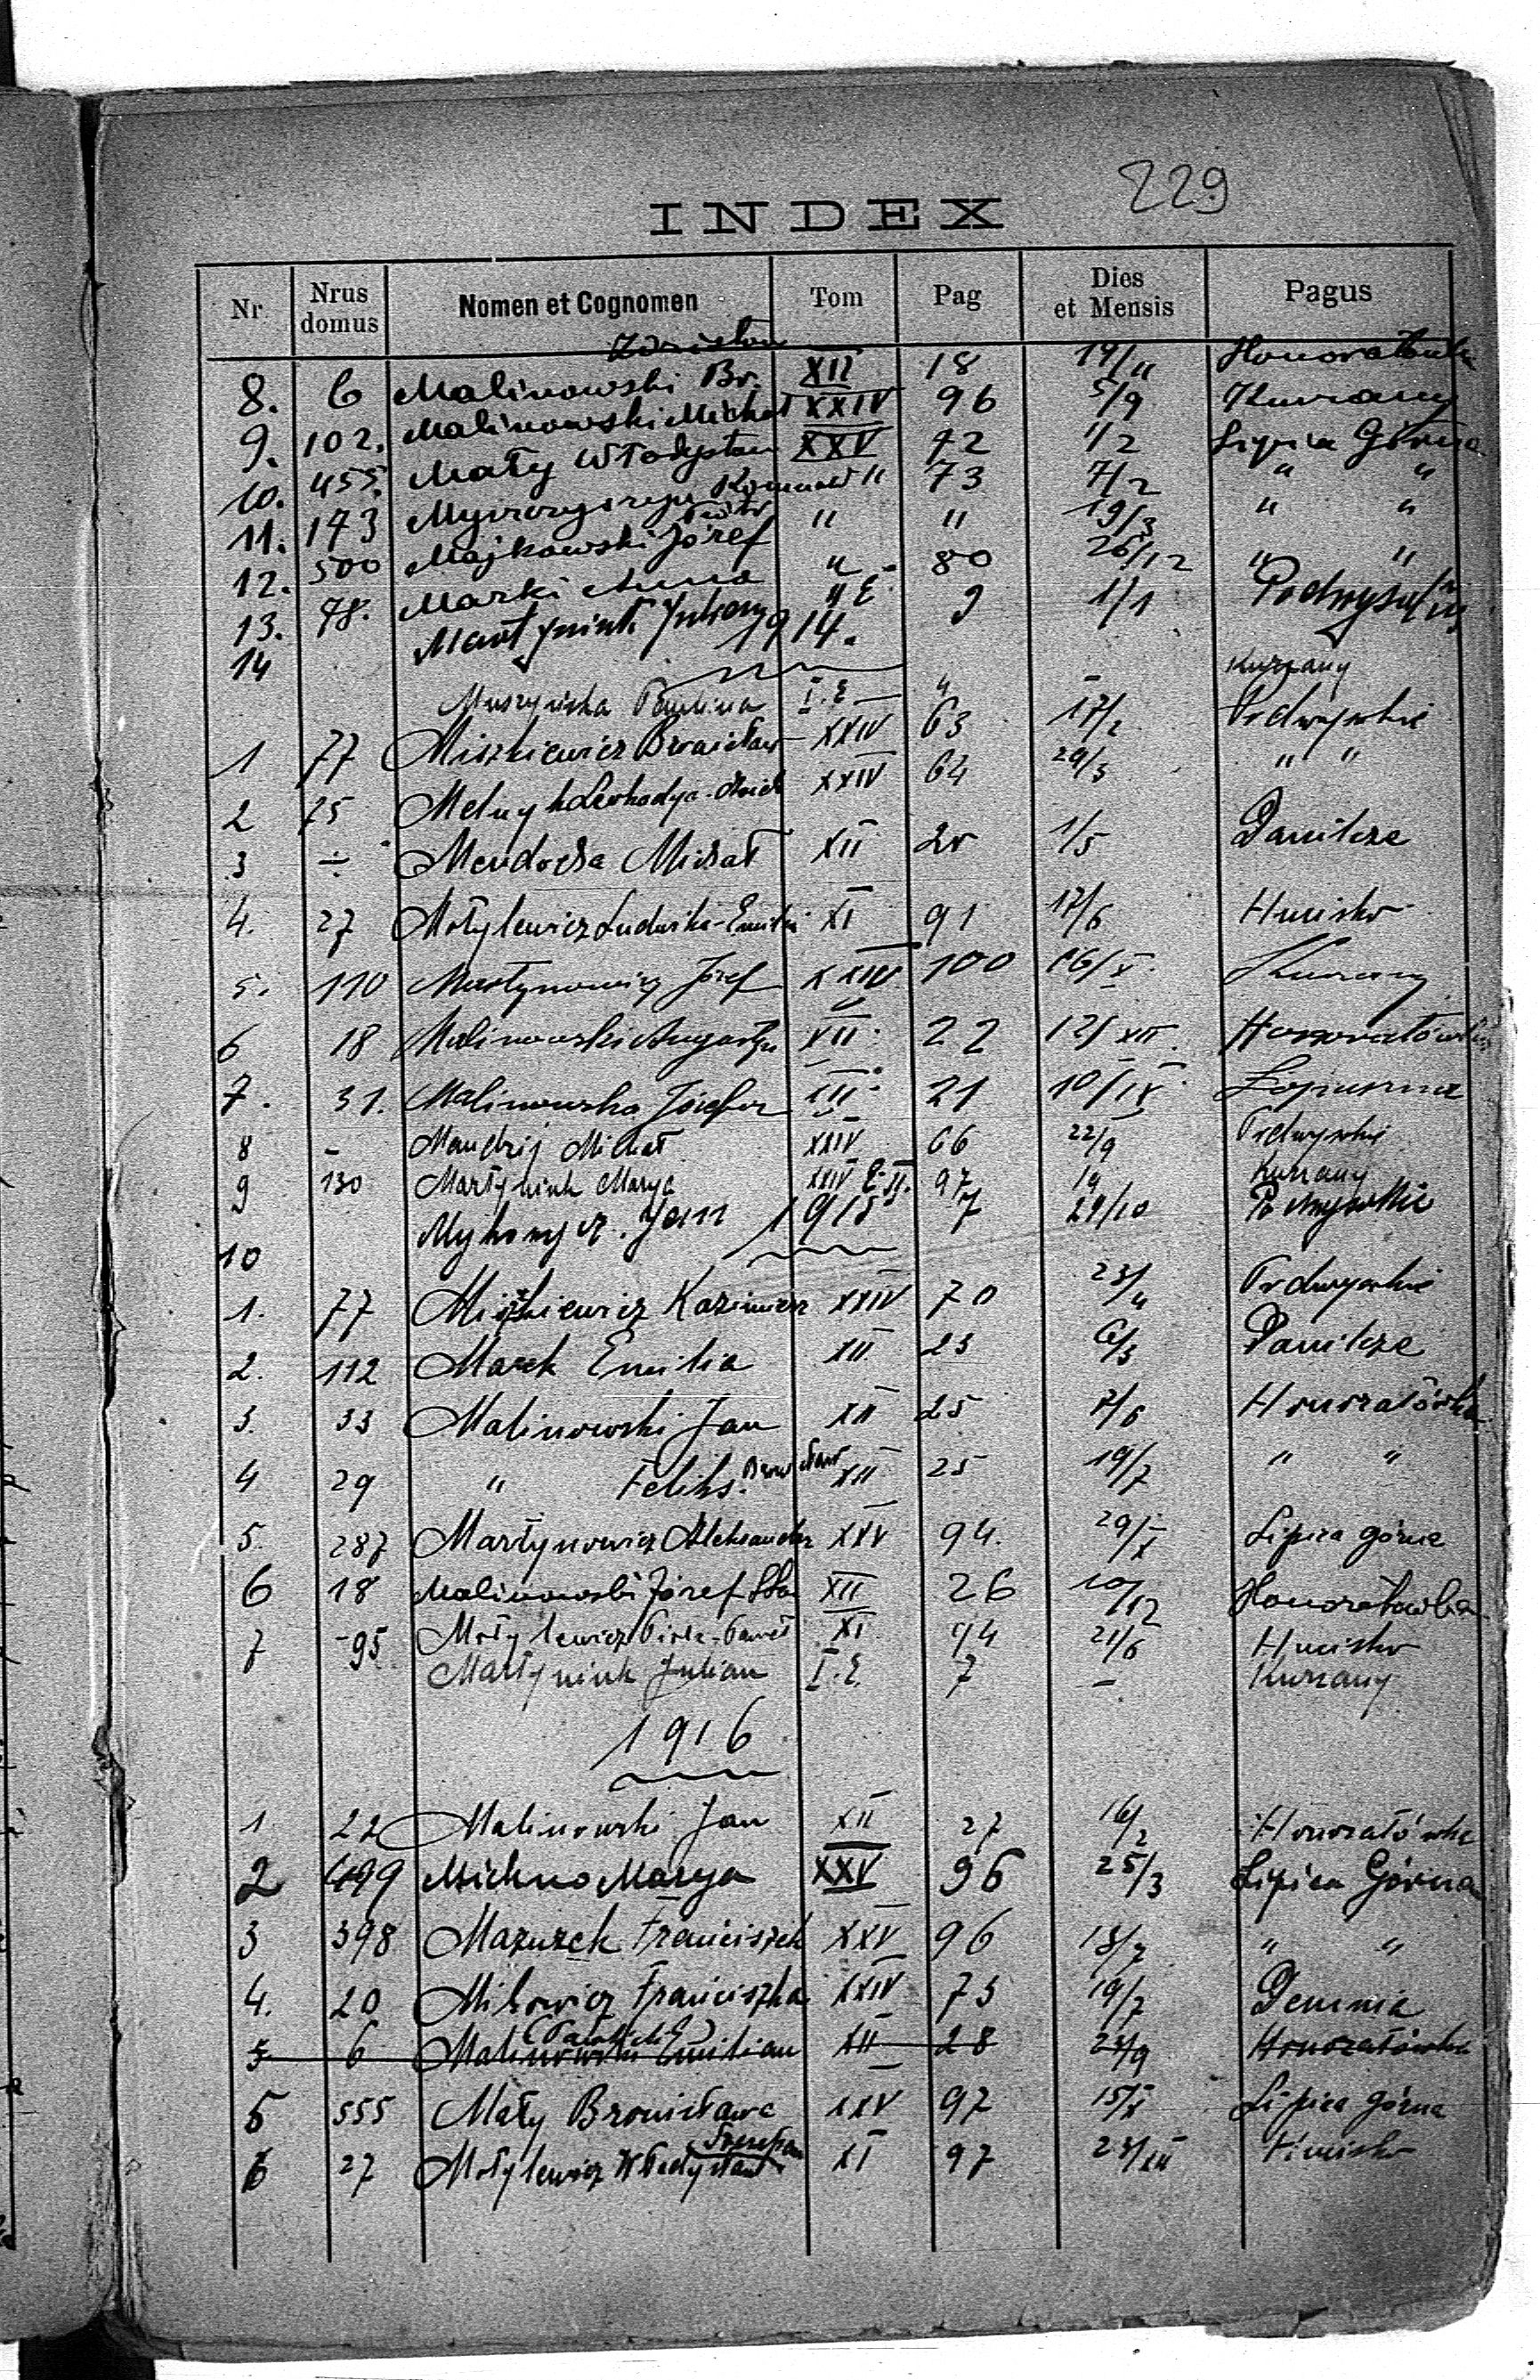 229
INDEX
Nr Nrus domus Nomen et Cognomen Tom Pag Dies et Mensis Pagus
8. 6 Malinowski Br. Zdzisław XII 18 19/11 Honoratówka
9. 102. Malinowski Michał XXIV 96 5/9 Kurzany
10. 455. Mały Władysław XXV 72 1/2 Lipica Górna
11. 173 Romuald " 73 7/2 " "
12. 500 Majkowski Józef Piotr " " 19/3 " "
13. 78. Marki Anna " 80 26/12 " "
14 Martyniuk Julian II E 9 1/1 Podwysokie
1914.
Muszyńska Paulina I. E — " — Kurzany
1 77 Miszkiewicz Bronisław XXIV 63 17/2 Podwysokie
2 75 Melnyk Leokadya XXIV 64 29/3 " "
3 ÷ Mendocha Michał XII 20 1/5 Danilcze
4. 27 Motylewicz Ludwika-Emilia XI 91 17/6 Hucisko
5. 110 Martynowicz Józef XXIV 100 16/X. Kurzany
6 18 Malinowski Augustyn XII. 22 12/XII. Honoratówka
7. 31. Malinowska Józefa XII. 21 10/IX. Łopuszna
8 - Mandzij Michał XXIV 66 22/9 Podwysokie
9 130 Martyniuk Marya XXIV E. II. 97 Kurzany
10 Jan 7 29/10 Podwysokie
1915
1. 77 Miszkiewicz Kazimierz XXIV 70 23/4 Podwysokie
2. 112 Marek Emilia XII 23 6/3 Danilcze
3. 33 Malinowski Jan XII 25 7/6 Honoratówka
4 29 " Feliks. Bronisław XII 25 19/7 " "
5. 287 Martynowicz Aleksander XXV 94. 29/X Lipica górna
6 18 Malinowski Józef XII 26 10/12 Honoratówka
7 95 Motylewicz Piotr-Paweł XI 94 21/6 Hucisko
Martyniuk Julian I. E. 7 — Kurzany
1916
1 22 Malinowski Jan XII 27 16/2 Honoratówka
2 499 Michno Marya XXV 96 25/3 Lipica Górna
3 398 Mazurek Franciszek XXV 96 18/7 " "
4. 20 Milowicz Franciszka XXIV 73 19/7 Demnia
5 6 Malinowski Emilian XII 28 23/9 Honoratówka
5 555 Mały Bronisława XXV 97 15/X Lipica górna
6 27 Motylewicz Władysław Szczepan XI 97 23/XII Hucisko